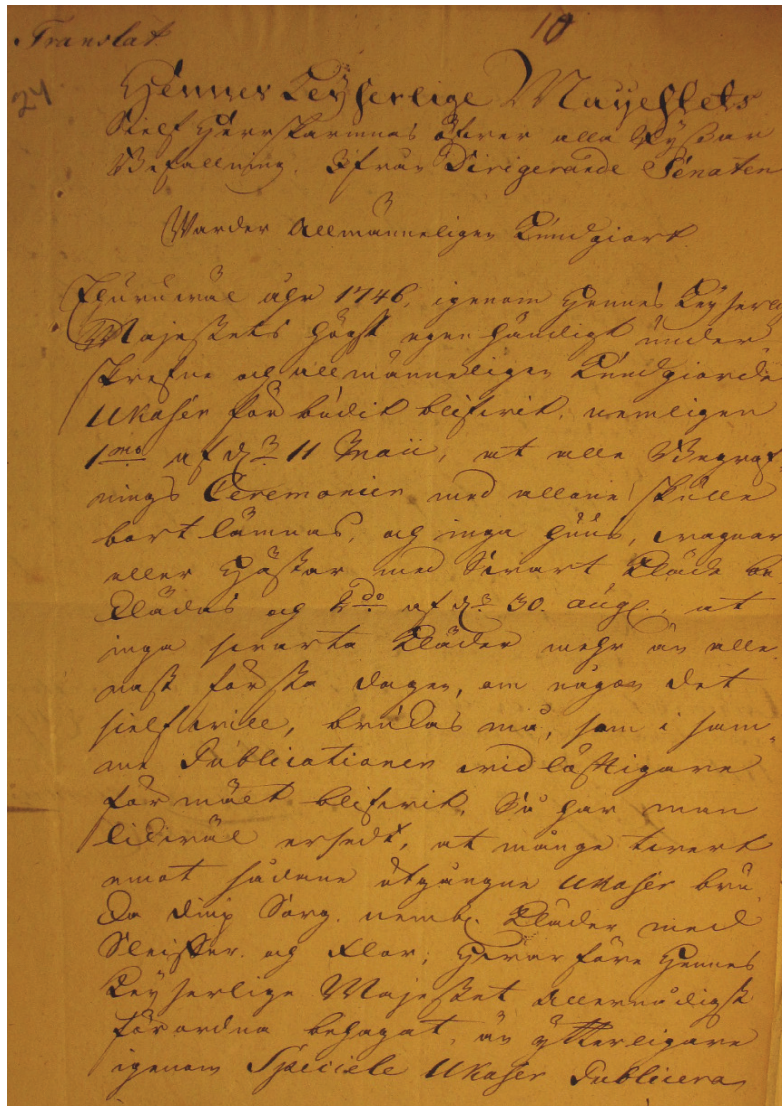 Translat
10
24
Hennes Keyserlige Mayestets
Sielf Herrskarinnas öfwer alla Ryssar
Befallning, Ifrån Dirigerande Senaten
Warder Allmänneligen Kundgiort
Ehuruwäl åhr 1746, igenom Hennes Keyserl.
Majestets högst egenhändigt under
skrefne och allmänneligen Kundgiorde
Ukaser förbudit blifwit, nemligen
1mo af d. 11 Maii, at alle Begraf-
nings Ceremonier med allone skulle
bortlämnas, och inga huus, wagnar
eller Hästar med Swart Kläde be
klädas och 2do af d. 30. aug., at
inga swarta Kläder mehr än alle
nast första dagen, om någon det
sielf will, brukas må, som i sam-
me Publicationer widlöftigare
förmält blifwit, Så har man
likwäl ersedt, at månge twert
emot sådane utgångne Ukaser bru
ka diup Sorg. neml. Kläder med
Sleiffer. och Flor; Hwarföre Hennes
Keyserlige Majestet Allernådigst
förordna behagat, än ytterligare
igenom Speciele Ukaser Publicera